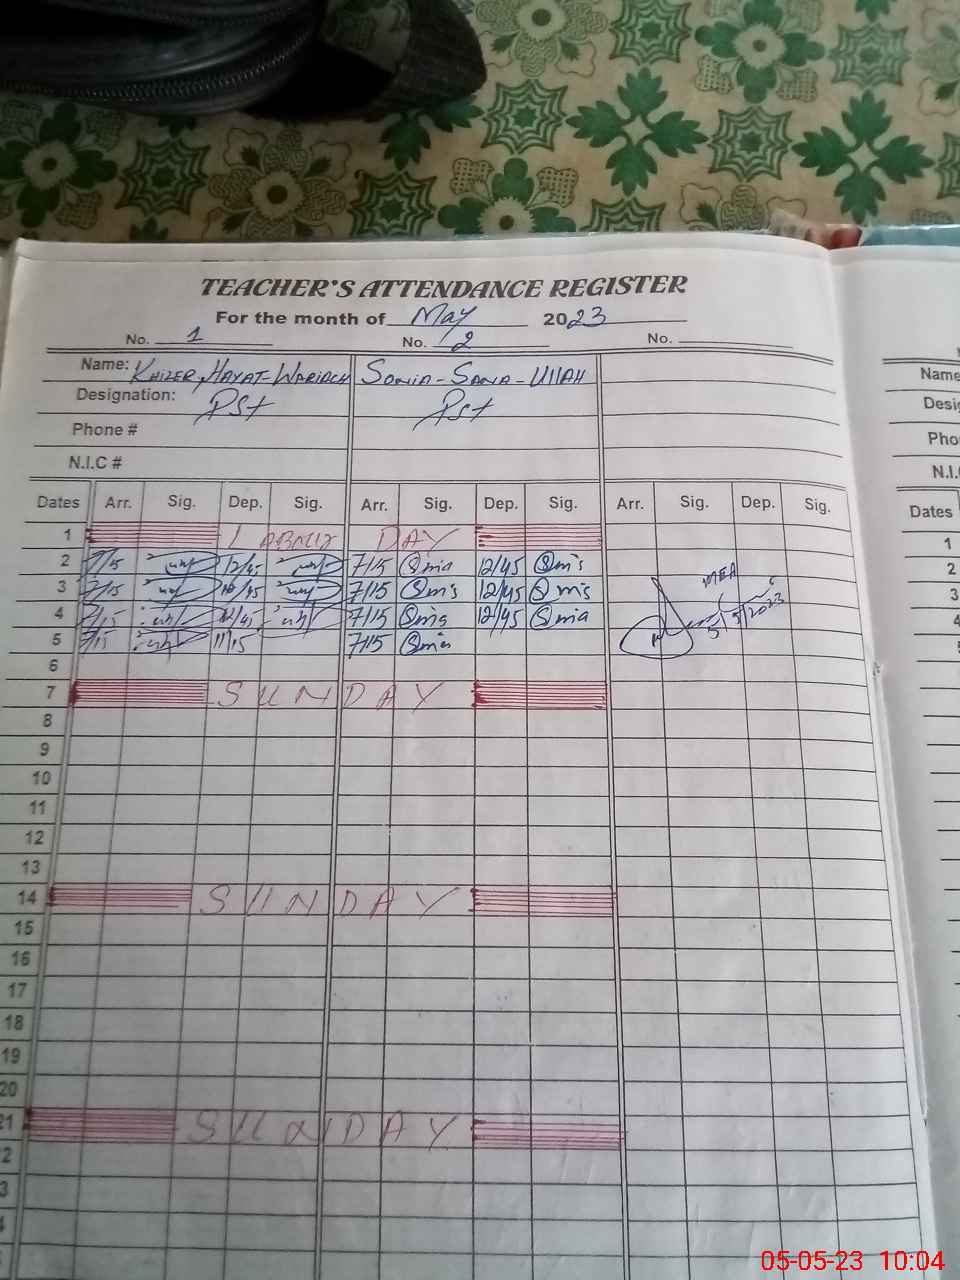 TEACHER'S ATTENDANCE REGISTER
For the month of May 2023
No. 1 No. 2 No.
Name: KHIZER HAYAT-WARIACH SONIA-SANA-UllAH Name
Designation: PSt PSt Desig
Phone # Pho
N.I.C # N.I.
Dates Arr. Sig. Dep. Sig. Arr. Sig. Dep. Sig. Arr. Sig. Dep. Sig. Dates
1 LABOUR DAY 1
2 7/15 12/45 7/15 12/45 2
3 7/15 12/45 7/15 12/45 MEA 3
4 7/15 12/45 7/15 12/45 5/5/2023 4
5 7/15 11/15 7/15
6
7 SUNDAY
8
9
10
11
12
13
14 SUNDAY
15
16
17
18
19
20
21 SUNDAY
2
3
4
05-05-23 10:04